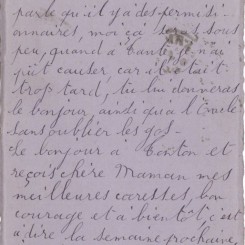 parce qu'il y a des permissi-
onnaires, moi ça sous
peu, quand à tante je n'ai
pût causer car il était
trop tard, tu lui donneras
le bonjour ainsi qu'a l'oncle
sans oublier les gos-
Le bonjour a Tonton et
reçois chère Maman mes
meilleures caresses, bon
courage et à bientôt c'est
a dire la semaine prochaine